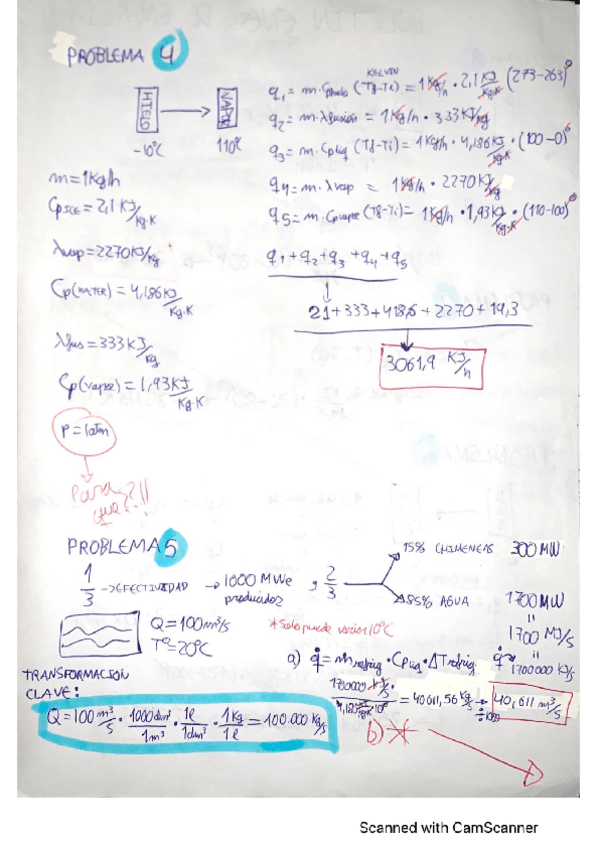 PROBLEMA 4
HIELO → VAPOR
-10ºC 110ºC
m=1Kg/h
CpICE=2,1 KJ/Kg·K
λvap=2270KJ/Kg
Cp(WATER)=4,186KJ/Kg·K
λfus=333KJ/Kg
Cp(vapor)=1,93KJ/Kg·K
P=1atm
Para que?!!
KELVIN
q1=m·Cphielo(Tf-Ti)=1Kg/h·2,1KJ/Kg·K(273-263)
q2=m·λfusión=1Kg/h·333KJ/Kg
q3=m·Cpliq(Tf-Ti)=1Kg/h·4,186KJ/Kg·K·(100-0)
q4=m·λvap=1Kg/h·2270KJ/Kg
q5=m·Cpvapor(Tf-Ti)=1Kg/h·1,93KJ/Kg·K·(110-100)
q1+q2+q3+q4+q5
21+333+418,6+2270+19,3
3061,9 KJ/h
PROBLEMA 5
1/3 → EFECTIVIDAD → 1000 MWe producidos, 2/3
15% CHIMENEAS 300 MW
85% AGUA 1700 MW
=
1700 MJ/s
=
1700000 KJ/s
Q=100m³/s
Tº=20ºC
*Solo puede variar 10ºC
a) q̇=mrefrig·Cpliq·ΔTrefrig
= 40611,56 Kg/s → 40,611 m³/s
÷1000
TRANSFORMACION
CLAVE:
Q=100 m³/s · 1000dm³/1m³ · 1l/1dm³ · 1Kg/1l = 100.000 Kg/s
b)*
Scanned with CamScanner